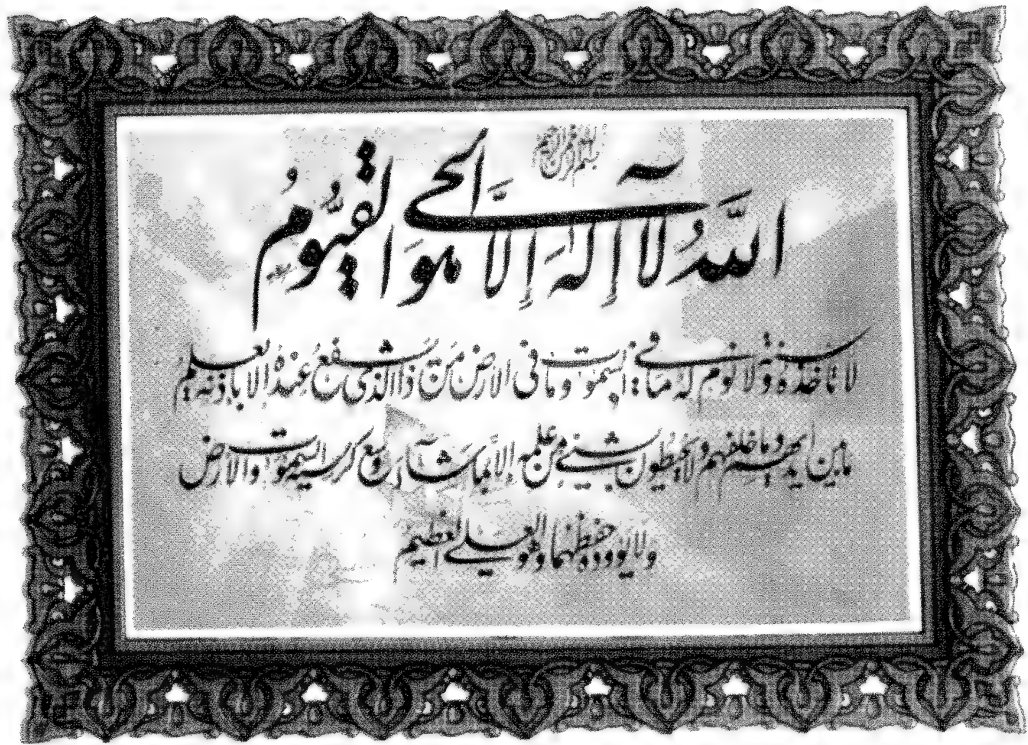 بسم الله الرحمن الرحيم
اللهُ لآ إله إلا هو الحي القيوم
لا تأخذه سنة ولا نوم له ما في السموت وما في الارض من ذا الذي يشفع عنده الا باذنه يعلم
ما بين ايديهم وما خلفهم ولا يحيطون بشيء من علمه إلا بما شآء وسع كرسيه السموت والارض
ولا يؤوده حفظهما وهو العلي العظيم